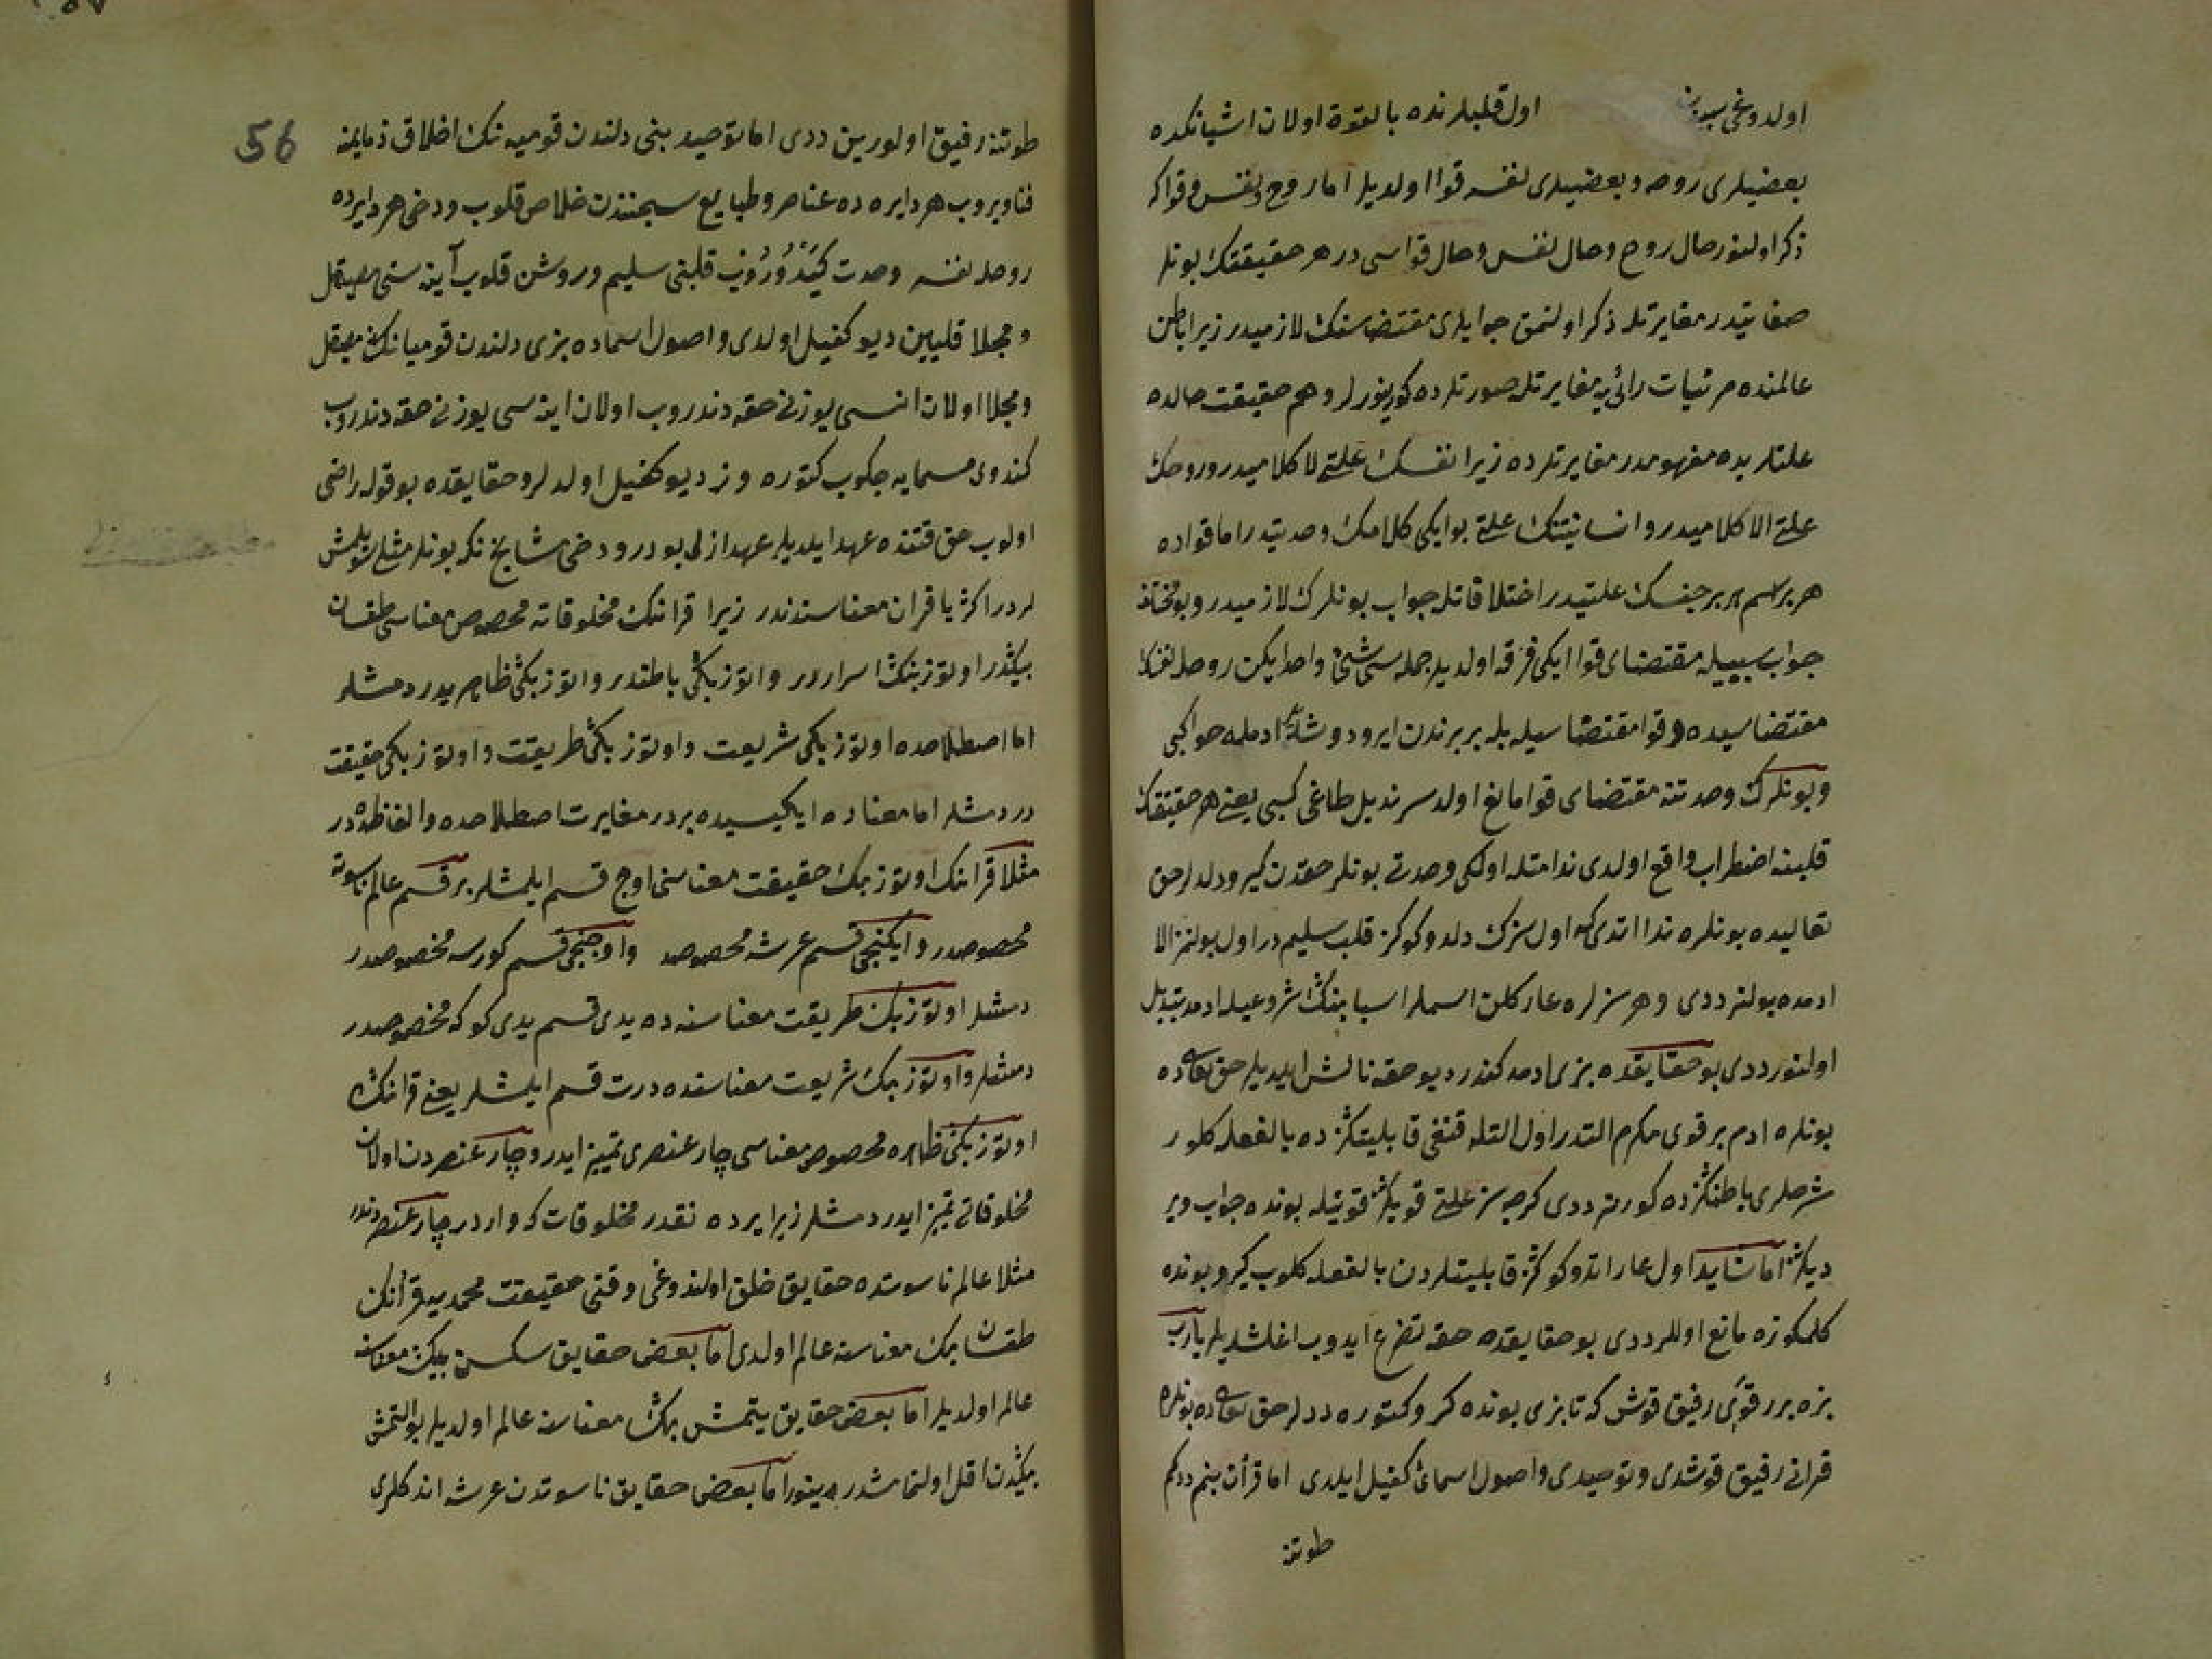 اولدوغی سببدن اول قلبلرنده بالقوة اولان اشیانكده
بعضیلری روحه و بعضیلری نفسه قوا اولدیلر اما روح و نفس و قوا كه
ذكر اولنور حال روح و حال نفس و حال قواسی در هر حقیقتك بونلر
صفاتیدر مغایرتله ذكر اولنمق جوابلری مقتضاسنك لازمیدر زیرا باطن
عالمنده مرئیات رائی یه مغایرتله صورتلرده كورینورلر و هم حقیقت حالده
علتلریده مفهومدر مغایرتلرده زیرا نفسك علتی لا كلامیدر و روحك
علتی الا كلامیدر و انسانیتنك علتی بو ایكی كلامك وحدتیدر اما قواده
هر بر اسم بر جنسك علتیدر اختلافاتله جواب بونلرك لازمیدر و بو مختلف
جواب سببیله مقتضای قوا ایكی فرقه اولدیلر جمله سی شیئ واحد ایكن روحله نفسك
مقتضاسیده و قوا مقتضاسیله بله بربرندن ایرو دوشدیلر ادمله حوا كبی
و بونلرك وحدتنه مقتضای قوا مانع اولدی سرندیل طاغی كبی یعنی هر حقیقتك
قلبنه اضطراب واقع اولدی ندامتله اولكی وحدتی بونلر حقدن كیرو دلدلر حق
تعالیده بونلره ندا اتدی كه اول سزك دلدوكوكز قلب سلیمدر اول بولنمز الا
ادمده بولنر ددی و هر سزلره عار كلن اسملر اسبابنك شروعیله ادمه تبدیل
اولنور ددی بو حقایقده بزی ادمه كندر دیو حقه نالش ایلدیلر حق تعالی ده
بونلره ادم بر قوی مكرم التدر اول التله قنغی قابلیتكزده بالفعله كلور
شرحلری باطنكزده كورنر ددی كرچه سز علتی قویكز قوتیله بونده جواب ویر
دیكز اما شاید اول عار اتدوكوكز قابلیتلردن بالفعله كلوب كیرو بونده
كلمكوزه مانع اوللر ددی بو حقایقده حقه تضرع ایدوب اغلشدیلر یا رب
بزه بر قوی رفیق قوش كه تا بزی بونده كرو كتوره ددلر حق تعالی ده بونلره
قرانی رفیق قوشدی و توحیدی و اصول اسمائی كفیل ایلدی اما قرأن بنم ددكم
طوتنه
56
طوتنه رفیق اولورین ددی اما توحید بنی دلندن قومیه نك اخلاق ذمایمنه
فنا ویروب هر دایره ده عناصر و طبایع سجنندن خلاص قلوب و دخی هر دایرده
روحله نفسه وحدت كیدورورب قلبنی سلیم و روشن قلوب آینه سنی صیقل
و مجلا قلیین دیو كفیل اولدی و اصول اسماده بزی دلندن قومیانك صیقل
و مجلا اولان انسی یوزنی حقه دندروب اولان اینه سی یوزنی حقه دندروب
كندوی مسمایه چكوب كتوره وز دیو كفیل اولدلر و حقایقده بو قوله راضی
اولوب حق قتنده عهد ایلدیلر عهد ازلی بودر و دخی مشایخ نكه بونلر مثللو سویلمش
لردر اكثریا قران معناسندندر زیرا قرانك مخلوقاته مخصوص معناسی طقسان
بیكدر اوتوز بیك اسراردر و اوتوز بیكی باطندر و اوتوز بیكی ظاهریدر دمشلر
اما اصطلاحده اوتوز بیكی شریعت و اوتوز بیكی طریقت و اوتوز بیكی حقیقت
در دمشلر اما معناده ایكیسیده بردر مغایرت اصطلاحده و الفاظده در
مثلا قرانك اوتوز بیك حقیقت معناسنی اوچ قسم ایلمشلر بر قسم عالم ناسوته
مخصوصدر و ایكنجی قسم عرشه مخصوصدر و اوچنجی قسم كورسه مخصوصدر
دمشلر اوتوز بیك طریقت معناسنده یدی قسم یدی كوكه مخصوصدر
دمشلر و اوتوز بیك شریعت معناسنده درت قسم ایلمشلر یعنی قرانك
اوتوز بیكی ظاهره مخصوص معناسی چار عنصری تمییز ایدر و چار عنصردن اولان
مخلوقاتی تمییز ایدر دمشلر زیرا یرده نقدر مخلوقات كه واردر چار عنصردندر
مثلا عالم ناسوتده حقایق خلق اولندوغی وقتی حقیقت محمدیه قرأنك
طقسان بیك معناسنه عالم اولدی اما بعض حقایق سكسن بیك معناسنه
عالم اولدیلر اما بعض حقایق یتمش بیك معناسنه عالم اولدیلر بو التمش
بیكدن اقل اولنمامشدر اما بعضی حقایق ناسوتدن عرشه اندكلری